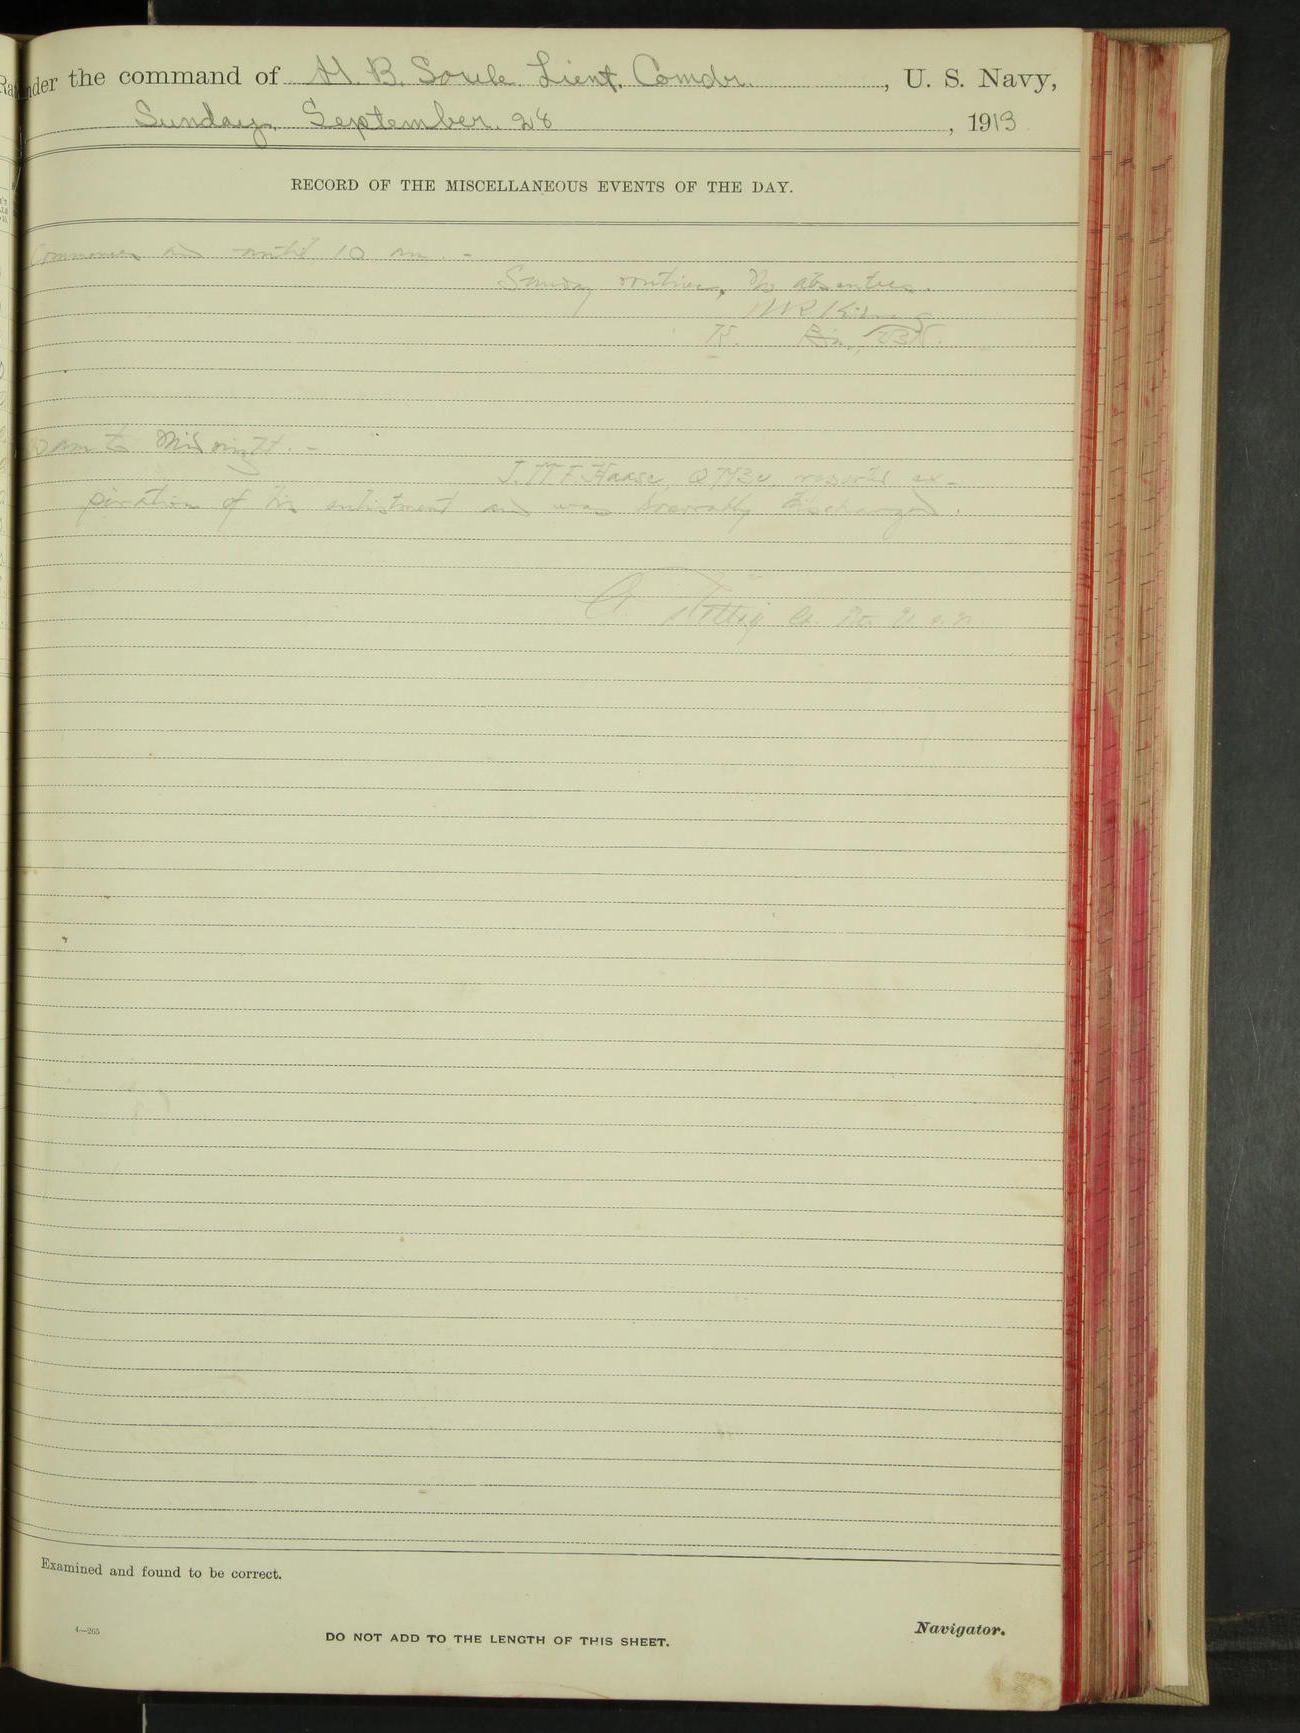 under the command of H. B. Soule Lieut. Comdr. , U. S. Navy,
Sunday, September. 28 , 1913
RECORD OF THE MISCELLANEOUS EVENTS OF THE DAY.
Commences and until 10 am. -
Sunday routine, No absentees.
am to Midnight. -
Haase, QM3c, reported ex-
piration of his enlistment and was honorably discharged.
U.S.N.
Examined and found to be correct.
4—265
DO NOT ADD TO THE LENGTH OF THIS SHEET.
Navigator.